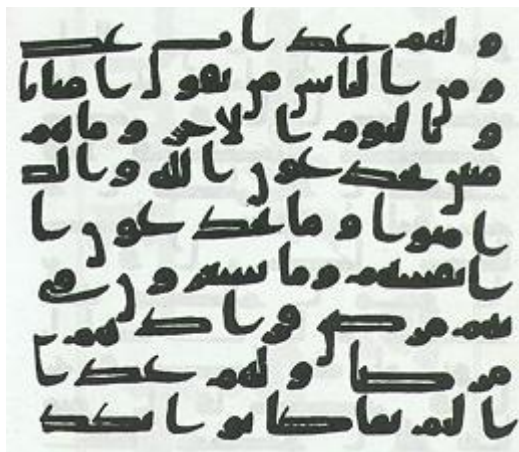 و لهم عذ ا ب عظ
و من ا لناس من يقو ل ا منا با
و با ليوم ا لاخر و ما هم
يخد عو ن ا لله و ا لذ
ا منو ا و ما يخد عو ن ا
ا نفسهم و ما يشعر و ن في
بهم مر ض فز ا د هم
مر ضا و لهم عذ ا
ا ليم بما كا نو ا يكذ